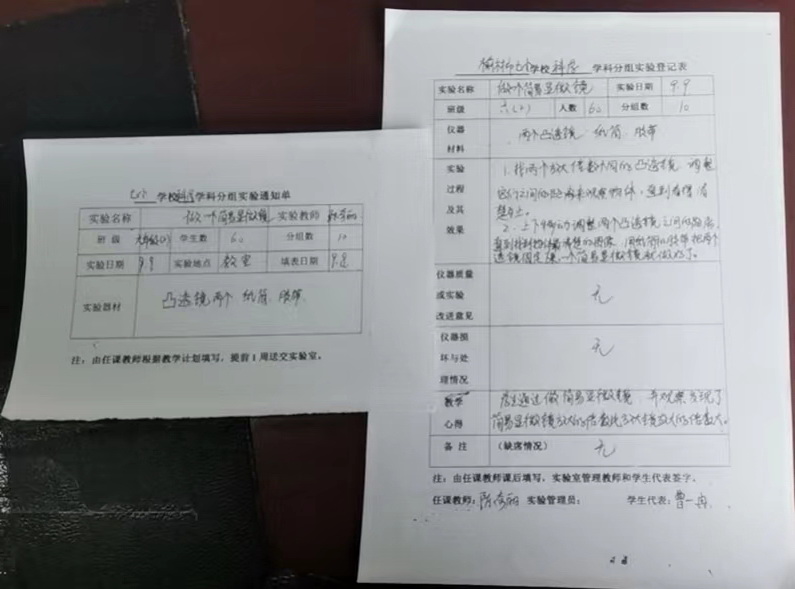 学校科学学科分组实验通知单
实验名称 做一个简易显微镜 实验教师
班级 学生数 60 分组数 10
实验日期 9.9 实验地点 教室 填表日期 9.8
实验器材 凸透镜两个 纸筒 胶带
注：由任课教师根据教学计划填写，提前1周送交实验室。
学校科学 学科分组实验登记表
实验名称 做个简易显微镜 实验日期 9.9
班级 六(2) 人数 60 分组数 10
仪器
材料
两个凸透镜 纸筒 胶带
实验
过程
及其
效果
1、将两个放大倍数不同的凸透镜 调整
它们之间的距离来观察物体，直到看得清
楚为止。
2、上下移动调整两个凸透镜之间的距离，
直到找到物体最清楚的图像，用纸筒和胶带把两个
透镜固定 一个简易显微镜就做好了。
仪器质量
或实验
改进意见
无
仪器损
坏与处
理情况
无
教学
心得
学生通过做简易显微镜，并观察发现了
简易显微镜放大的倍数比放大镜放大的倍数大。
备注 （缺席情况） 无
注：由任课教师课后填写，实验室管理教师和学生代表签字。
任课教师： 实验管理员： 学生代表：曹一冉